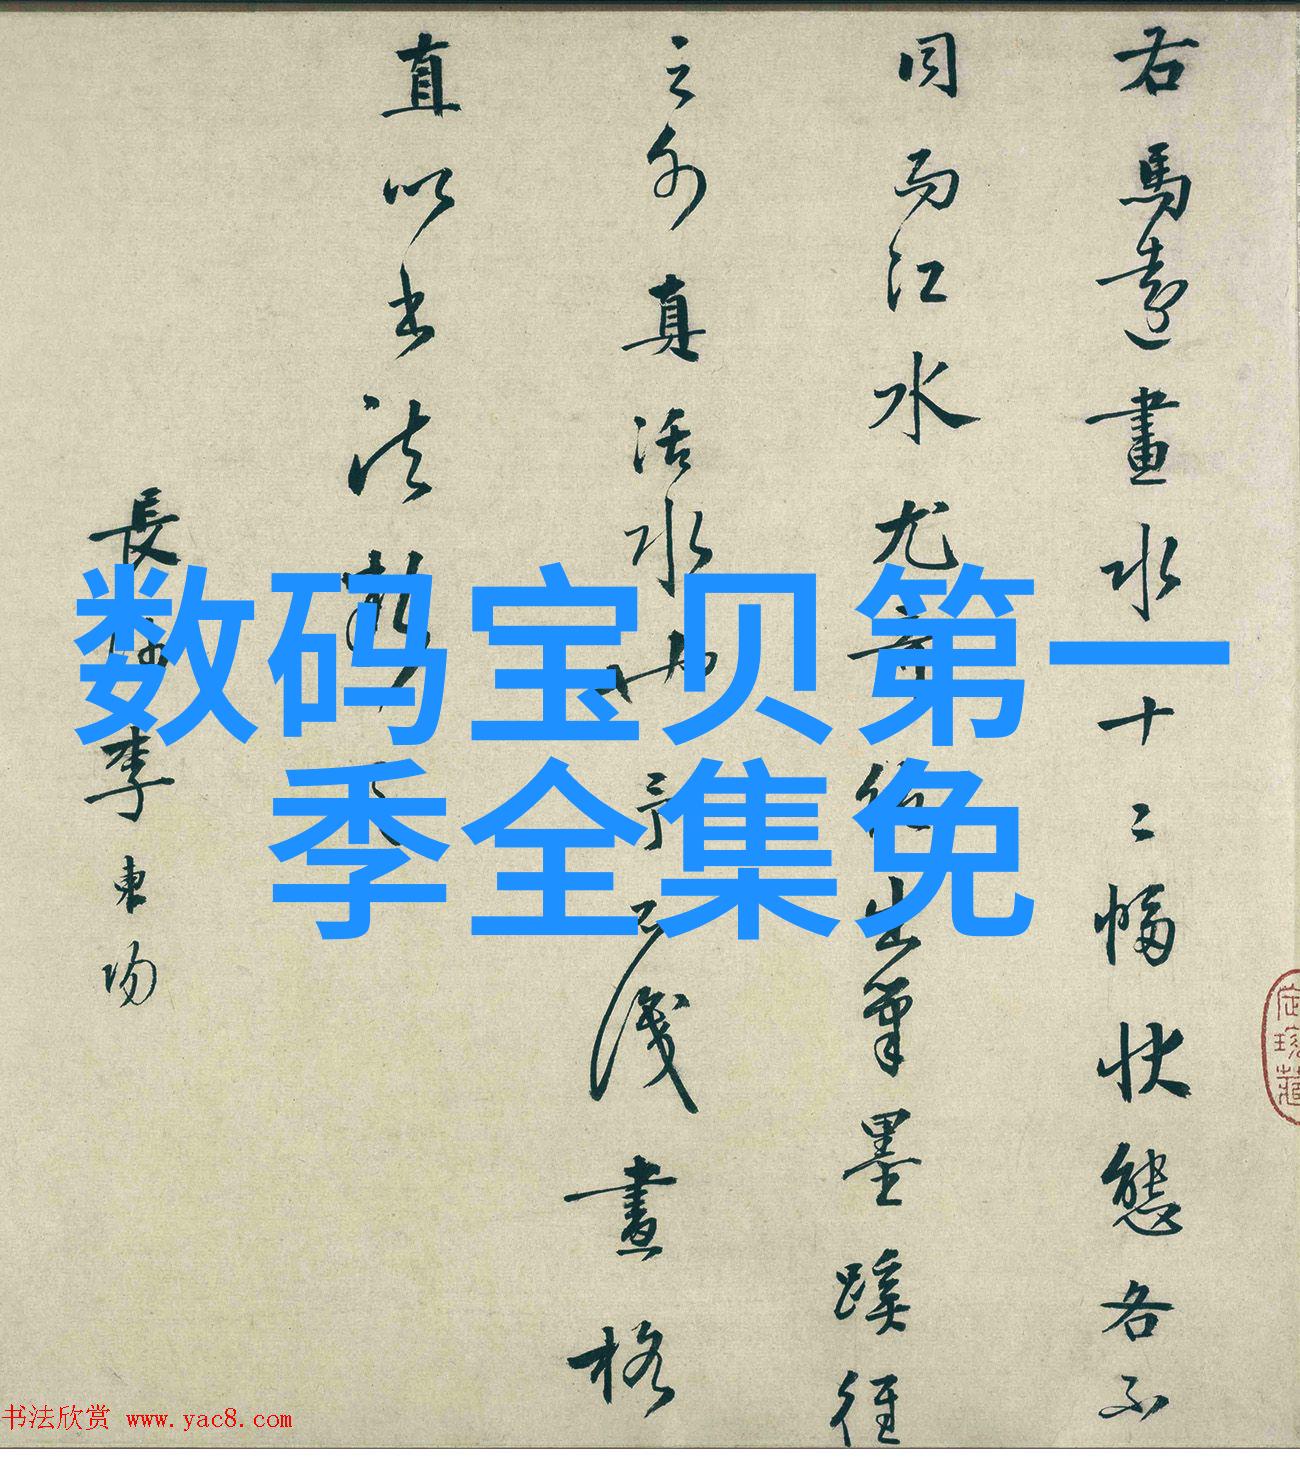 右馬遠畫水十二幅狀態各不
同而江水尤奇絕出筆墨蹊徑
之外真活水也予不識畫格
直以書法
長沙李東陽
数码宝贝第一
季全集免
珍藏
书法欣赏 www.yac8.com